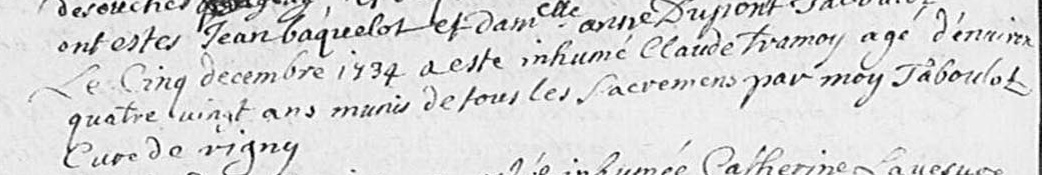 desouches
ont estes Jean baquelot et dam.elle anne Dupont Taboulot
Le Cinq decembre 1734 a este inhumé Claude tramoy agé d'énuiron
quatre vingt ans munis de tous les Sacremens par moy Taboulot
Cure de rigny
inhumée Catherine